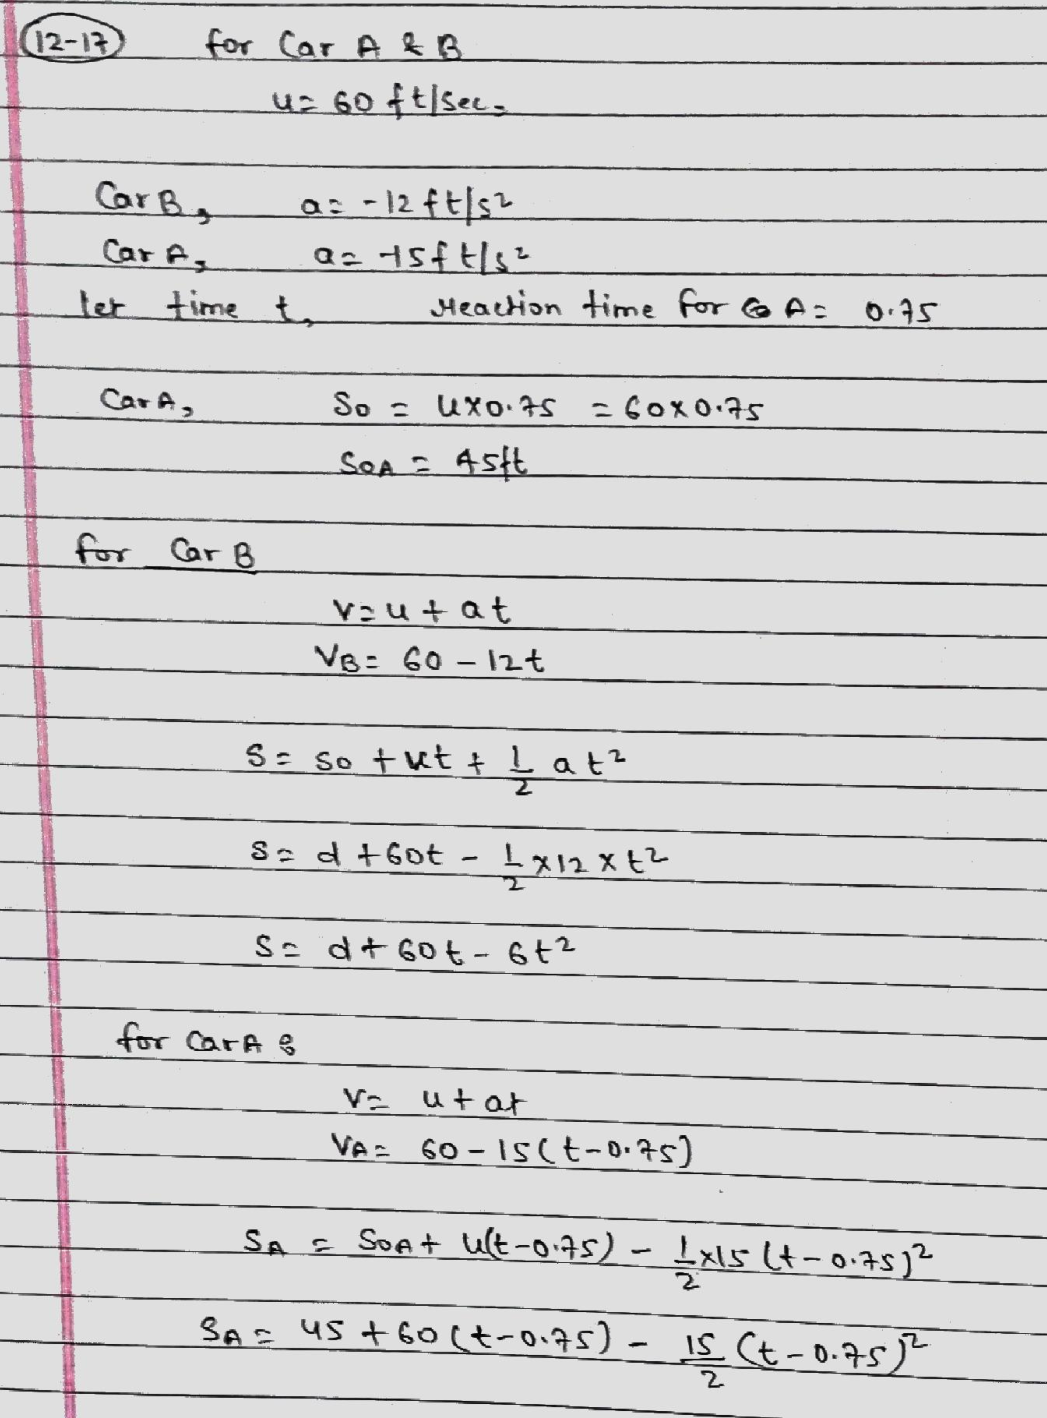 12-17 for Car A & B
u = 60 ft/sec,
Car B, a = -12 ft/s²
Car A, a = -15 ft/s²
let time t, reaction time for A = 0.75
Car A, So = u×0.75 = 60×0.75
SoA = 45ft
for Car B
v = u + at
VB = 60 - 12t
S = so + ut + 1/2 at²
S = d + 60t - 1/2 × 12 × t²
S = d + 60t - 6t²
for Car A :
v = u + at
VA = 60 - 15(t-0.75)
SA = SoA + u(t-0.75) - 1/2 ×15 (t-0.75)²
SA = 45 + 60(t-0.75) - 15/2 (t-0.75)²